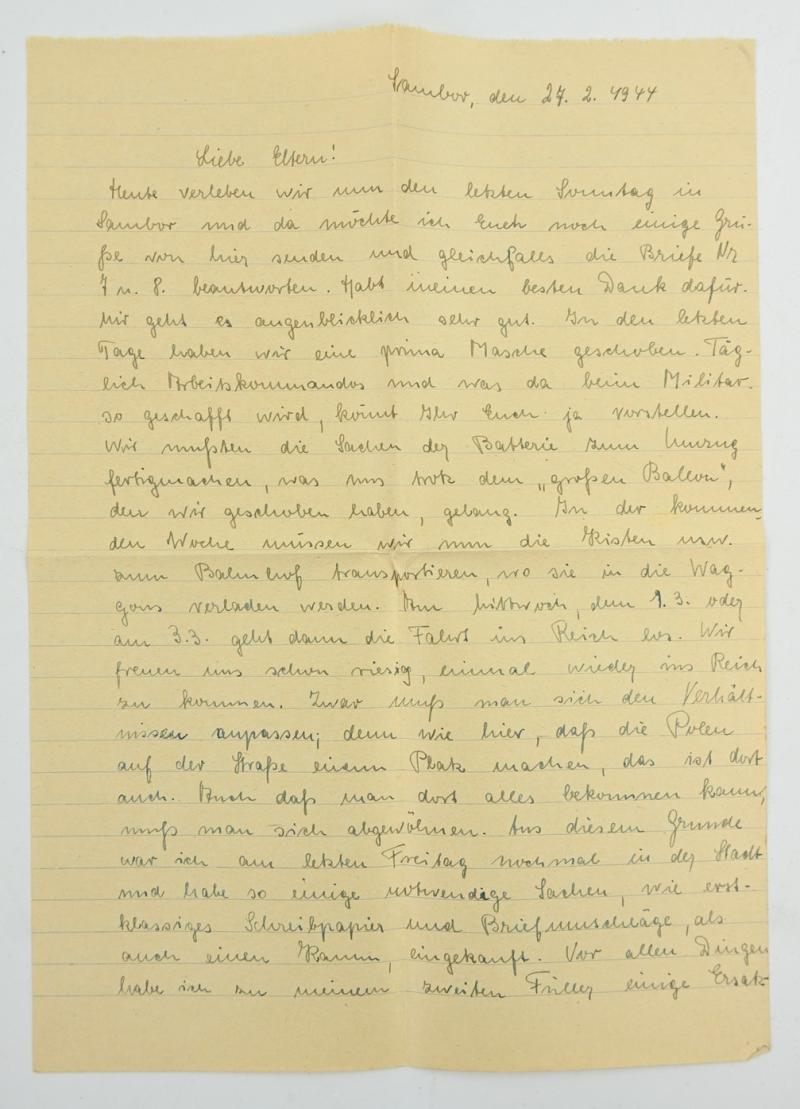 Sambor, den 27. 2. 1944
Liebe Eltern!
Heute verleben wir nun den letzten Sonntag in
Sambor und da möchte ich Euch noch einige Grü-
ße von hier senden und gleichfalls die Briefe Nr
7 u. 8. beantworten. Habt meinen besten Dank dafür.
Mir geht es augenblicklich sehr gut. In den letzten
Tage haben wir eine prima Masche geschoben. Täg-
lich Arbeitskommandos und was da beim Militär
so geschafft wird, könnt Ihr Euch ja vorstellen.
Wir mußten die Sachen der Batterie zum Umzug
fertigmachen, was uns trotz dem „großen Ballon",
den wir geschoben haben, gelang. In der kommen-
den Woche müssen wir nun die Kisten usw.
zum Bahnhof transportieren, wo sie in die Wag-
gons verladen werden. Am Mittwoch, dem 1.3. oder
am 3.3. geht dann die Fahrt ins Reich los. Wir
freuen uns schon riesig, einmal wieder ins Reich
zu kommen. Zwar muß man sich den Verhält-
nissen anpassen; denn wie hier, daß die Polen
auf der Straße einem Platz machen, das ist dort
auch. Auch daß man dort alles bekommen kann,
muß man sich abgewöhnen. Aus diesem Grunde
war ich am letzten Freitag nochmal in der Stadt
und habe so einige notwendige Sachen, wie erst-
klassiges Schreibpapier und Briefumschläge, als
auch einen Kamm, eingekauft. Vor allen Dingen
habe ich zu meinem zweiten Füller einige Ersatz-